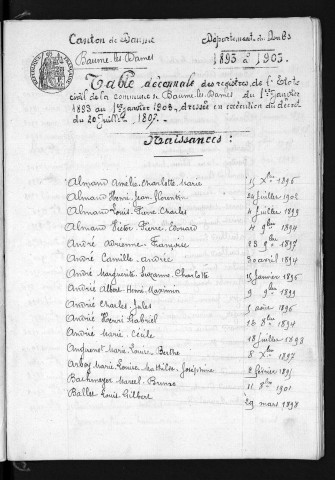 Canton de Baume
Département du Doubs
Baume-les-Dames
1893 à 1903.
Table décennale des registres de l'État
civil de la commune de Baume-les-Dames du 1er Janvier
1893 au 1er Janvier 1903, dressée en exécution du décret
du 20 Juillet 1807.
Naissances:
Almand Amélie Charlotte Marie 15 Xbre 1896
Almand Henri Jean Florentin 20 Juillet 1902
Almand Louis Pierre Charles 4 Juillet 1899
Almand Victor Pierre Edouard 4 9bre 1894
André Adrienne Françoise 23 9bre 1897
André Camille Andrée 30 avril 1894
André Marguerite Suzanne Charlotte 15 Janvier 1896
André Albert Henri Maximin 9 9bre 1899
André Charles Jules 5 août 1896
André Henri Gabriel 12 8bre 1894
André Marie Cécile 18 Juillet 1893
Marie Louise Berthe 8 Xbre 1897
Marie Louise Mathilde Joséphine 2 février 1895
Bachmeyer Marcel Bruno 11 8bre 1901
Ballet Louis Gilbert 29 mars 1898